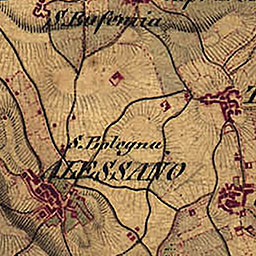 S. Eufemia
S. Bologna
ALESSANO